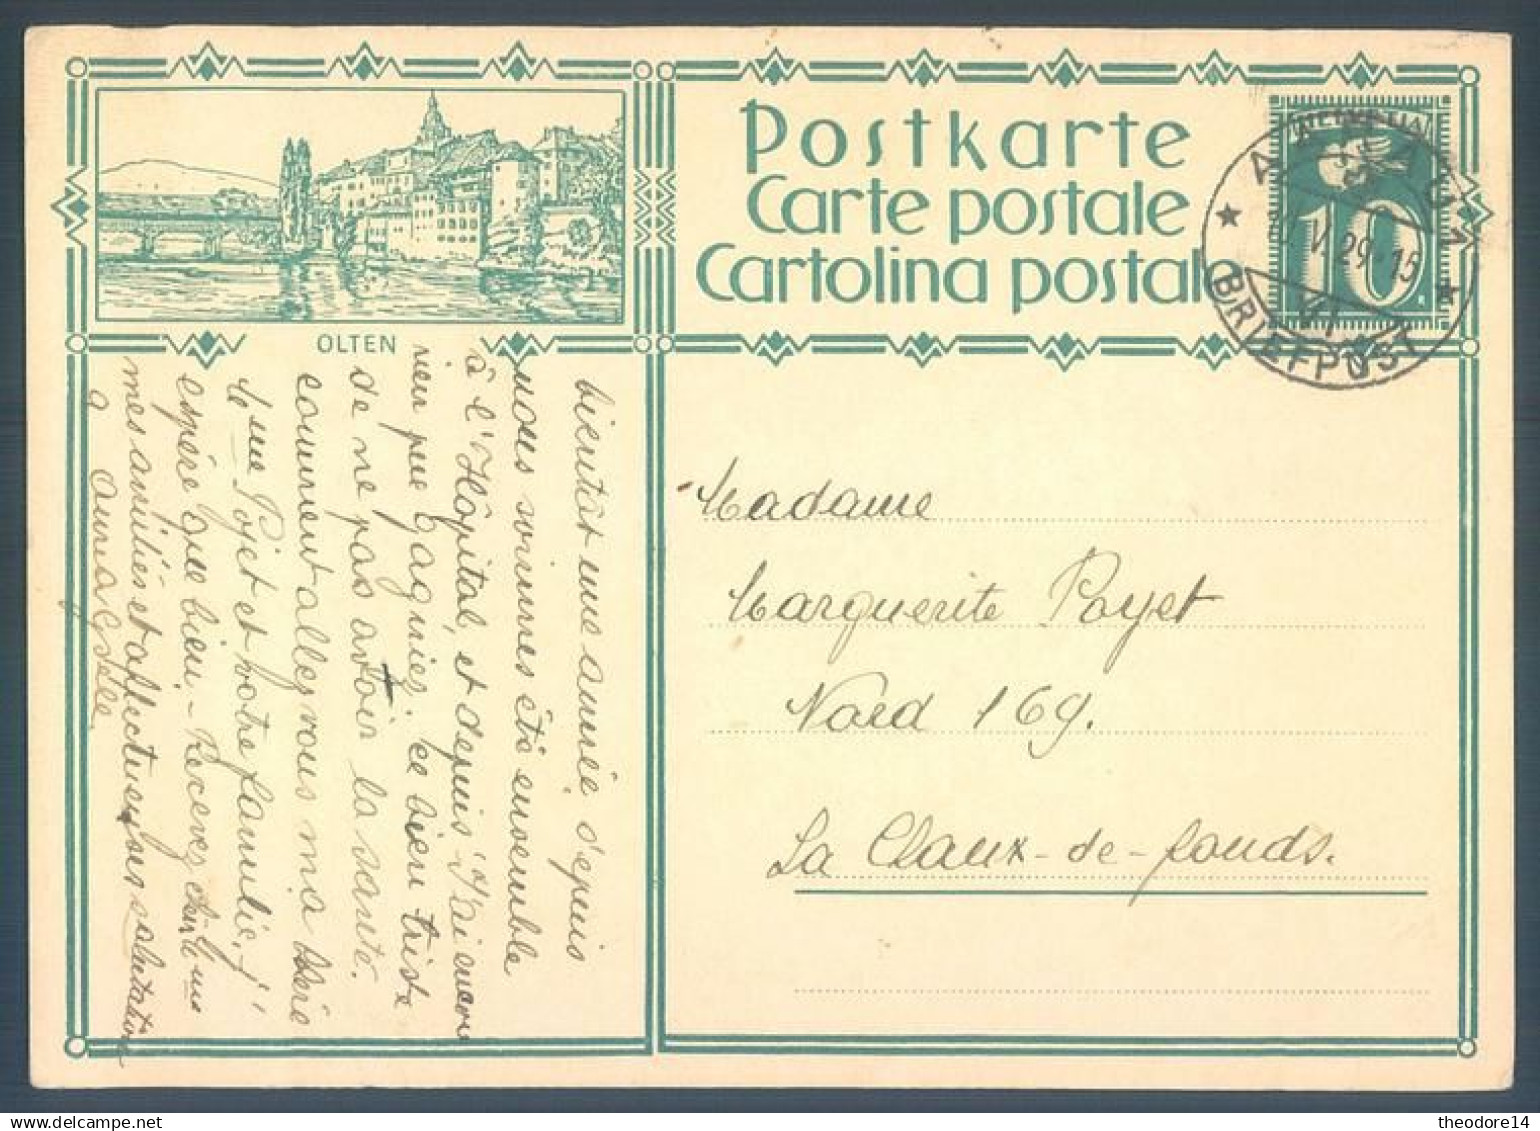 Postkarte
Carte postale
Cartolina postale
HELVETIA
10
AARAU 1
V.29-15
VI
BRIEFPOST
OLTEN
Madame
Marguerite Poyet
Nord 169.
La Chaux-de-fonds.
bientôt une année, depuis
nous sommes été ensemble
à l'Hôpital, et depuis j'ai encore
rien pue gagnier. ce bien triste
de ne pas avoir la santé.
comment allez vous ma chère
Mme Poyet et votre famille, j'
espère que bien. - Recevez chère Mme
mes amitiés et affectueuses salutations
Anna
theodore14